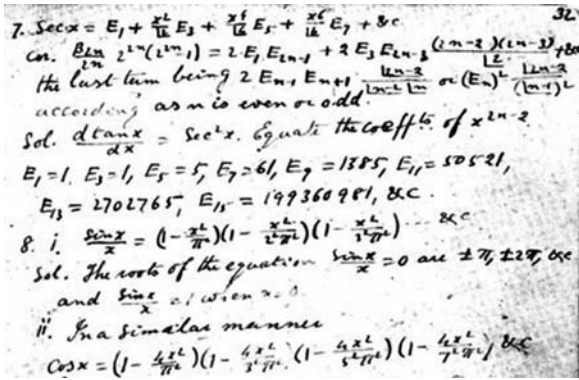 32
7. Sec x = E₁ + x²/|2 E₃ + x⁴/|4 E₅ + x⁶/|6 E₇ + &c
Cor. B₂ₙ/2n 2²ⁿ(2²ⁿ-1) = 2 E₁ E₂ₙ₋₁ + 2 E₃ E₂ₙ₋₃ (2n-2)(2n-3)/|2 + &c
the last term being 2 Eₙ₋₁ Eₙ₊₁ |2n-2/|n-2 |n or (Eₙ)² |2n-2/(|n-1)²
according as n is even or odd.
Sol. d tan x/dx = Sec² x. Equate the coeffts. of x²ⁿ⁻²
E₁=1, E₃=1, E₅=5, E₇=61, E₉=1385, E₁₁=50521,
E₁₃=2702765, E₁₅=199360981, &c.
8. i. Sin x/x = (1 - x²/π²)(1 - x²/2²π²)(1 - x²/3²π²) ... &c
Sol. The roots of the equation Sin x/x = 0 are ±π, ±2π, &c
and Sin x/x = 1 when x = 0.
ii. In a similar manner
Cos x = (1 - 4x²/π²)(1 - 4x²/3²π²)(1 - 4x²/5²π²)(1 - 4x²/7²π²) &c